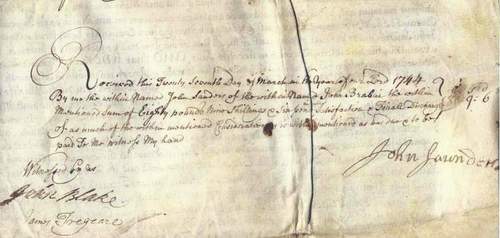 Received this Twenty Seventh Day of March in the Year of our Lord 1744
By me the within Named John Sanders of the within Named John Brabin the within
Mentioned Sum of Eighty pounds Nine Shillings & Six pence Satisfaction & finall Discharge
of as much of the within mentioned Consideration as is within mentioned as and to be
paid to Me witness My hand
9: 6
John Saunders
Witnessed by us
John Blake
James Tregeare